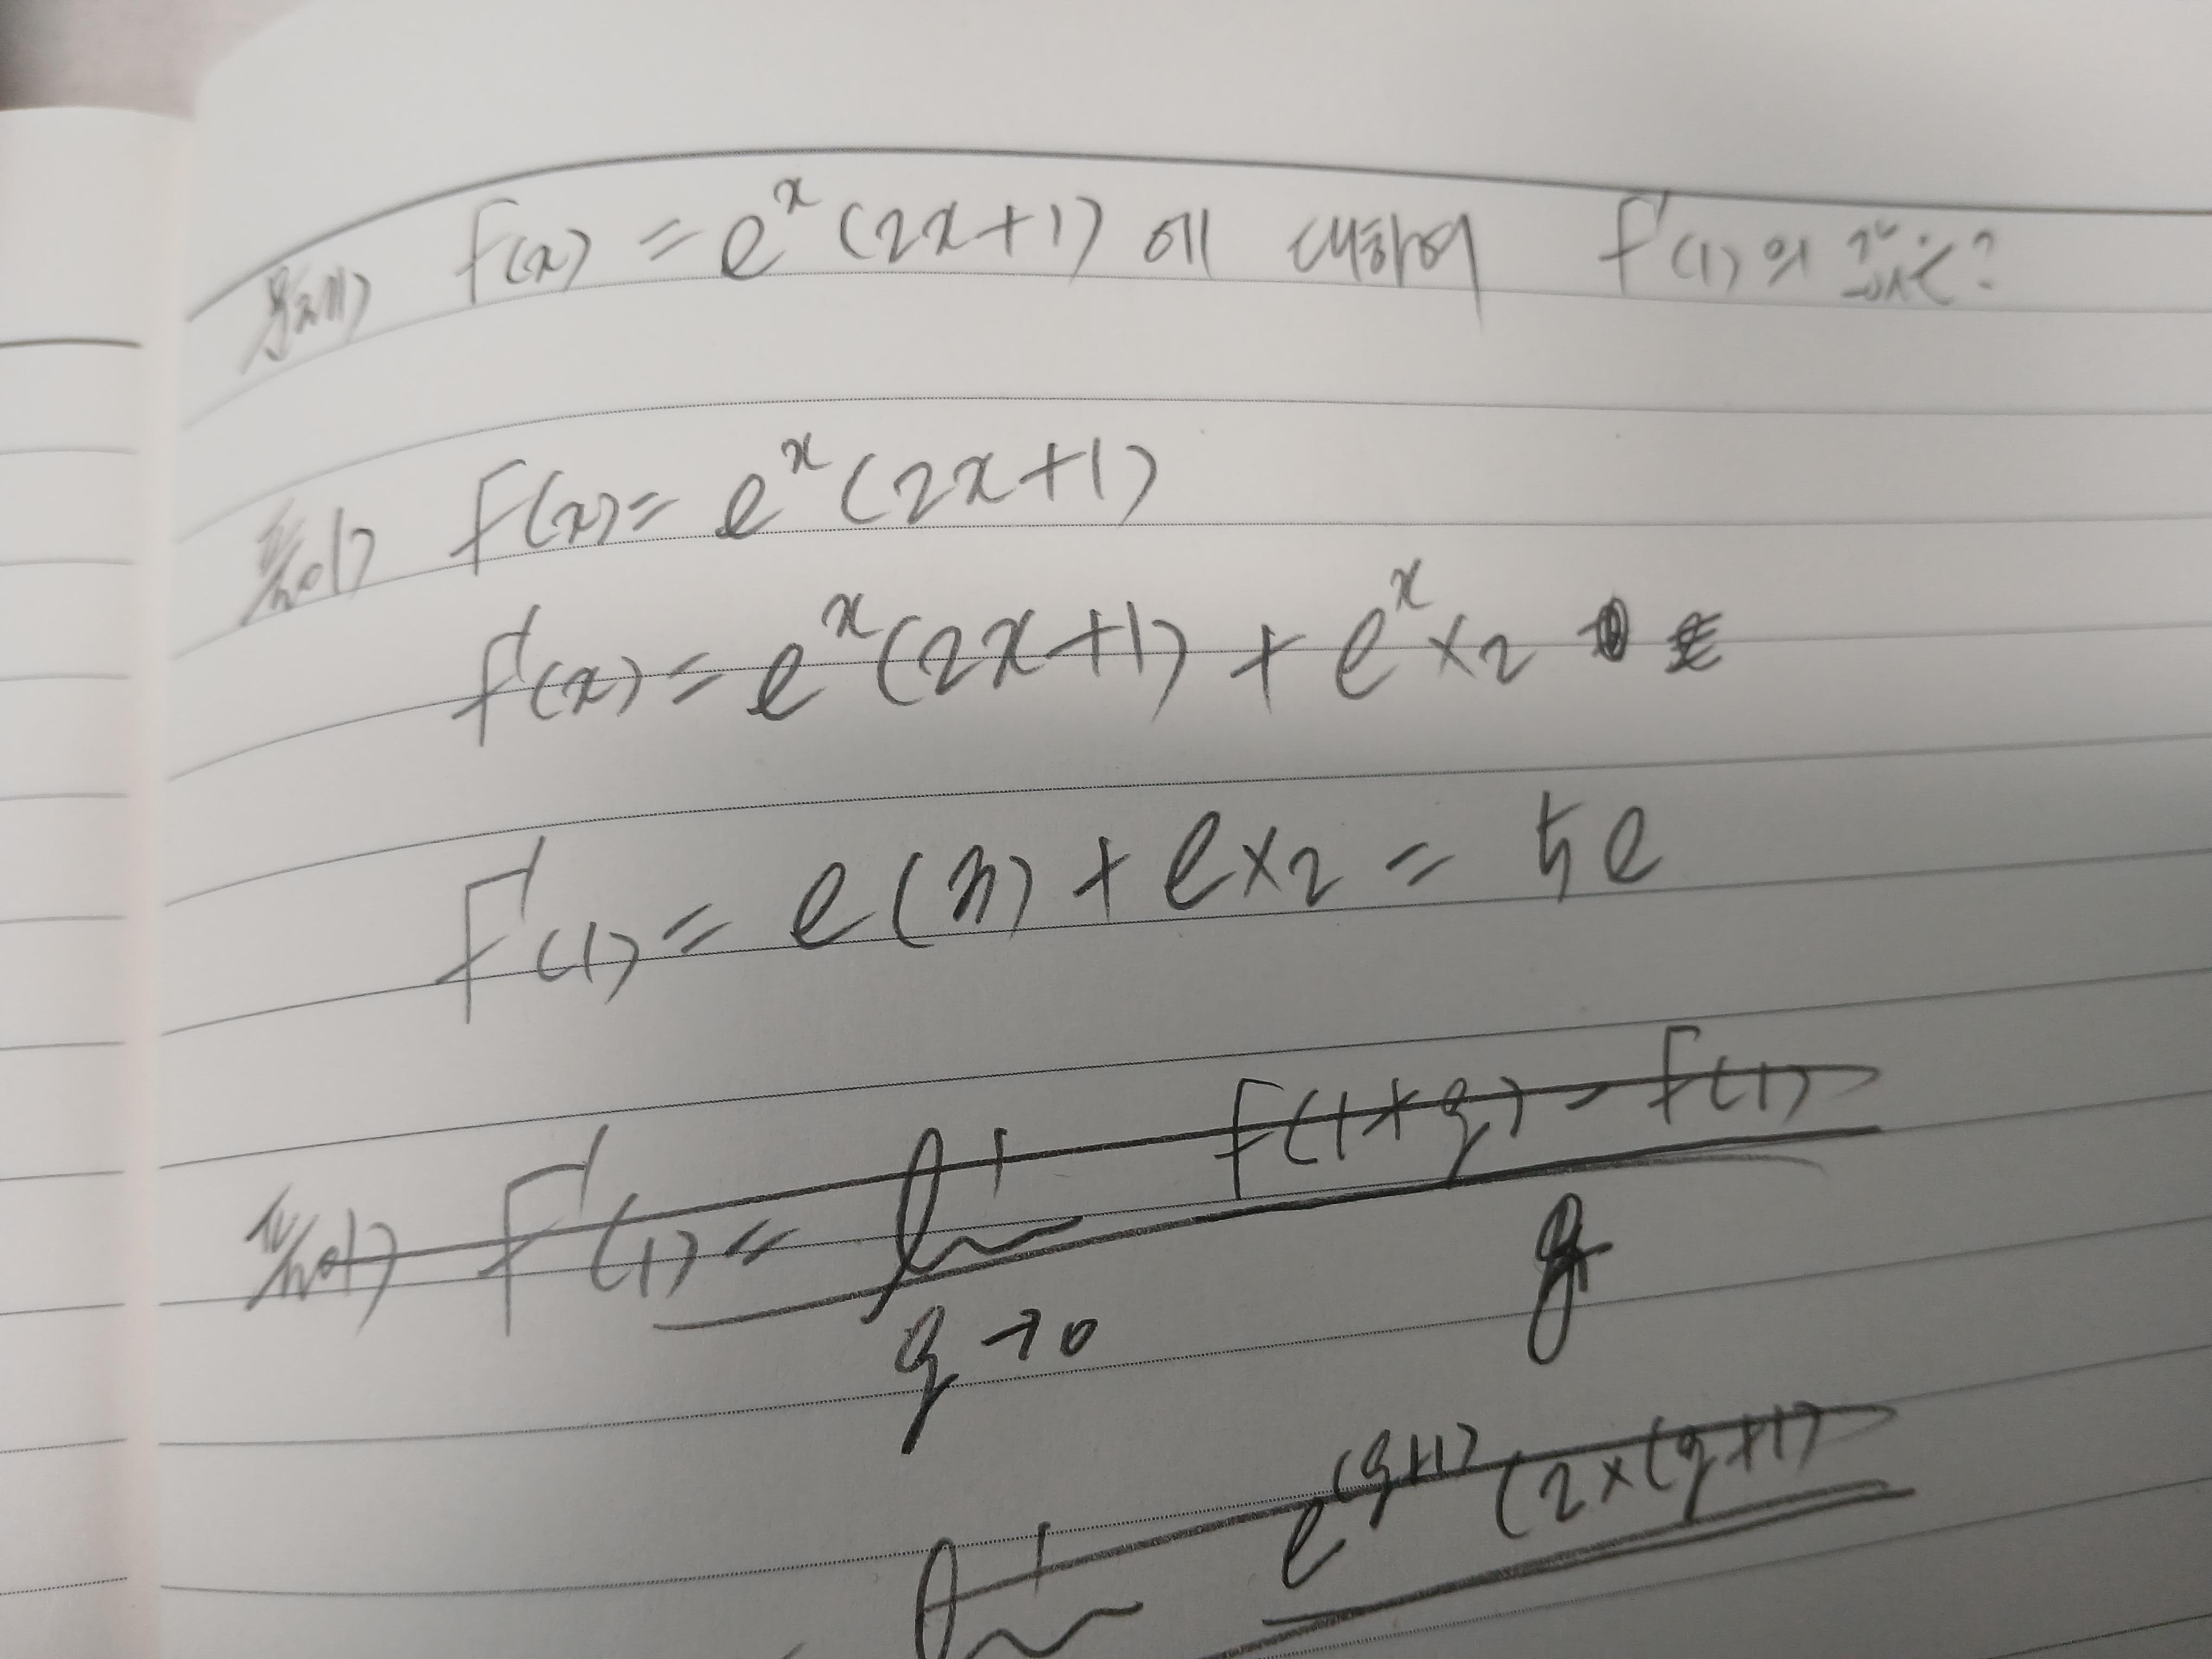 문제) f(x) = e^x (2x+1) 에 대하여 f'(1)의 값은?
풀이) f(x) = e^x (2x+1)
f'(x) = e^x (2x+1) + e^x × 2
f'(1) = e(3) + e×2 = 5e
풀이) f'(1) = lim f(1+g) - f(1)
g→0 g
lim e^(g+1) (2×(g+1)